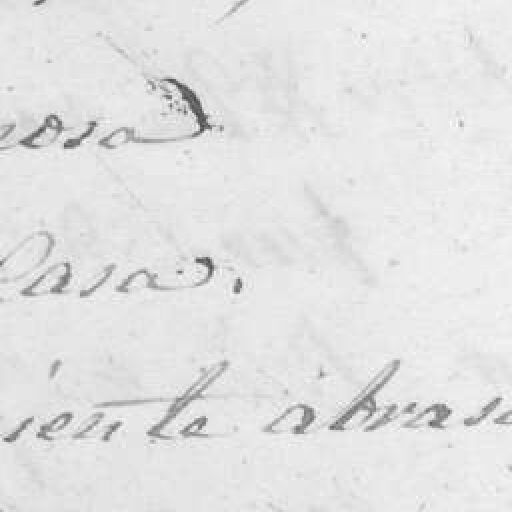 nosa
Casa.
siente abras